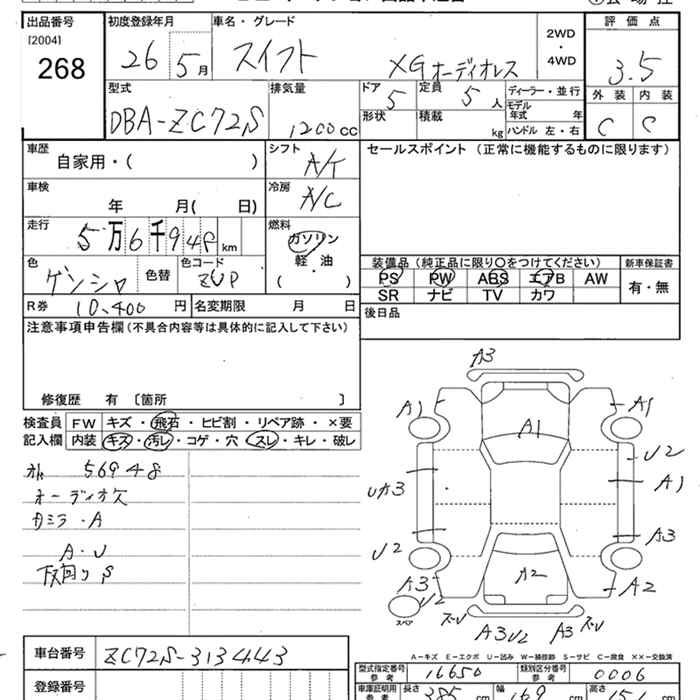 出品番号 初度登録年月 車名・グレード 評価点
[2004] 268
26 5月 スイフト XGオーディオレス 2WD・4WD 3.5
外装 内装
C C
型式 排気量 ドア 定員 ディーラー・並行
DBA-ZC72S 1200cc 5 5人 モデル年式 年
形状 積載 kg ハンドル 左・右
車歴 シフト セールスポイント (正常に機能するものに限ります)
自家用・( ) A/T
車検 冷房
年 月( 日) A/C
走行 燃料
5万6千948km ガソリン
軽・油
( )
色 色替 色コード
ゲンシャ ZUP
装備品 (純正品に限り○をつけてください) 新車保証書
PS PW ABS エアB AW 有・無
SR ナビ TV カワ
R券 10,400円 名変期限 月 日
後日品
注意事項申告欄 (不具合内容等は具体的に記入して下さい)
修復歴 有 [箇所 ]
検査員 FW キズ・飛石・ヒビ割・リペア跡・×要
記入欄 内装 キズ・汚レ・コゲ・穴・スレ・キレ・破レ
56948
オーディオ欠
カミラ・A
A・U
下回りS
A3
A1 A1
A1
U2
UA3 A1
U2 A3
A3 A2 A2
U2
スペア
ズレ A3U2 A3 ズレ
A-キズ E-エクボ U-凹み W-補修跡 S-サビ C-腐食 XX-交換済
車台番号 ZC72S-313443
型式指定番号 参考 16650 類別区分番号 参考 0006
登録番号
車庫証明用 参考 長さ 385cm 幅 169 高さ 151cm